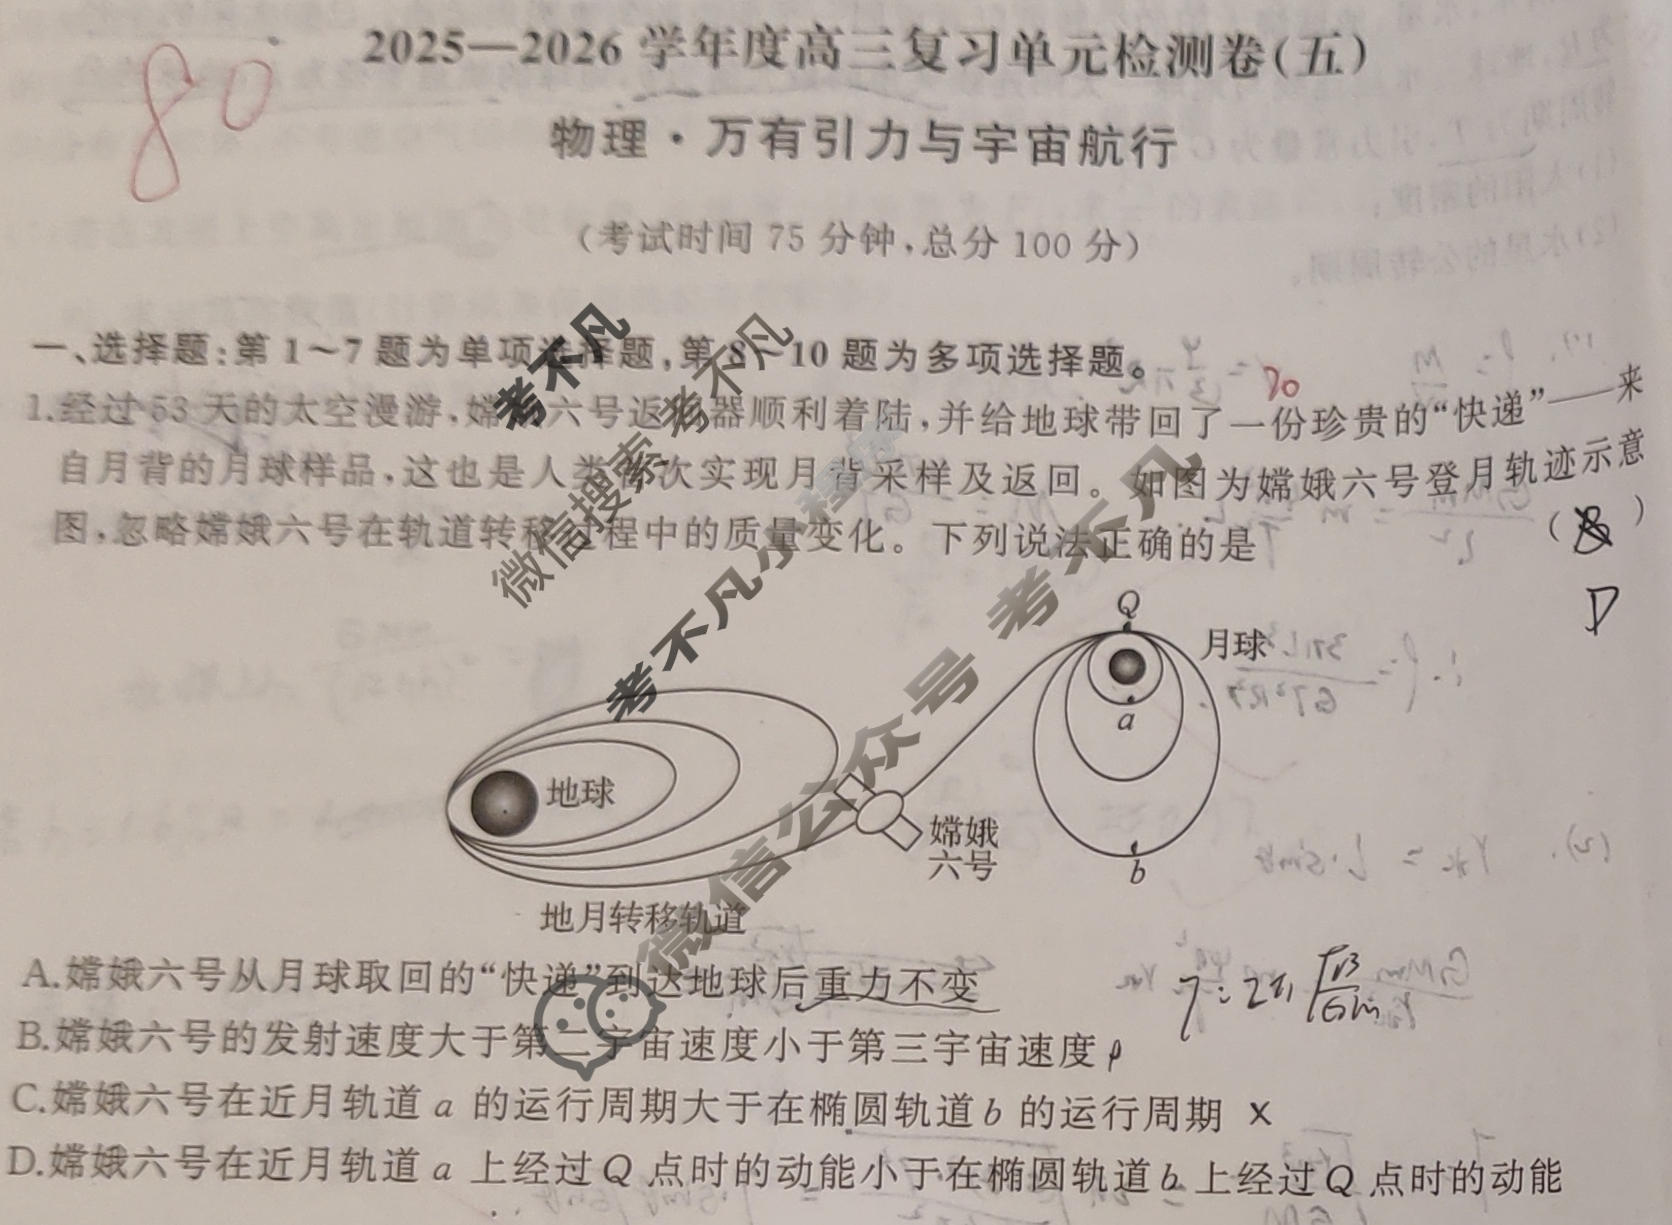 2025—2026 学年度高三复习单元检测卷(五)
80
物理·万有引力与宇宙航行
(考试时间 75 分钟,总分 100 分)
一、选择题:第 1～7 题为单项选择题,第 8～10 题为多项选择题。
80
1.经过 53 天的太空漫游,嫦娥六号返回器顺利着陆,并给地球带回了一份珍贵的“快递”——来
自月背的月球样品,这也是人类首次实现月背采样及返回。如图为嫦娥六号登月轨迹示意
图,忽略嫦娥六号在轨道转移过程中的质量变化。下列说法正确的是 ( )
D
Q
月球
a
地球
嫦娥
六号
b
地月转移轨道
A.嫦娥六号从月球取回的“快递”到达地球后重力不变
B.嫦娥六号的发射速度大于第二宇宙速度小于第三宇宙速度
C.嫦娥六号在近月轨道 a 的运行周期大于在椭圆轨道 b 的运行周期 ×
D.嫦娥六号在近月轨道 a 上经过 Q 点时的动能小于在椭圆轨道 b 上经过 Q 点时的动能
考不凡
考不凡
微信搜索
考不凡小程序
考不凡
微信公众号